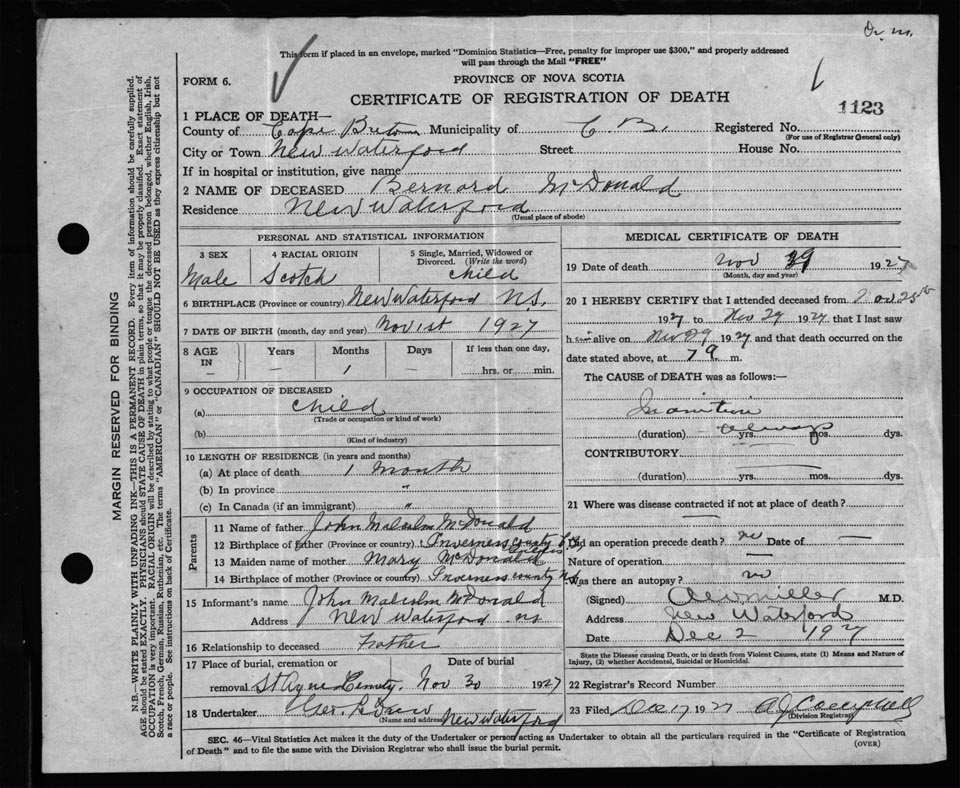 Dr. m.
This form if placed in an envelope, marked "Dominion Statistics—Free, penalty for improper use $300," and properly addressed
will pass through the Mail "FREE"
FORM 6.
PROVINCE OF NOVA SCOTIA
CERTIFICATE OF REGISTRATION OF DEATH
1123
1 PLACE OF DEATH—
County of Cape Breton Municipality of C. B. Registered No.
(For use of Registrar General only)
City or Town New Waterford Street House No.
If in hospital or institution, give name
2 NAME OF DECEASED Bernard McDonald
Residence New Waterford
(Usual place of abode)
PERSONAL AND STATISTICAL INFORMATION
3 SEX
Male
4 RACIAL ORIGIN
Scotch
5 Single, Married, Widowed or
Divorced. (Write the word)
child
6 BIRTHPLACE (Province or country) New Waterford N.S.
7 DATE OF BIRTH (month, day and year) Nov 1st 1927
8 AGE
IN
—
Years
—
Months
1
Days
—
If less than one day,
hrs. or min.
9 OCCUPATION OF DECEASED
(a) child
(Trade or occupation or kind of work)
(b)
(Kind of industry)
10 LENGTH OF RESIDENCE (in years and months)
(a) At place of death 1 month
(b) In province "
(c) In Canada (if an immigrant) "
Parents
11 Name of father John Malcolm McDonald
12 Birthplace of father (Province or country) Inverness county
13 Maiden name of mother Mary McDonald
14 Birthplace of mother (Province or country) Inverness county N.S.
15 Informant's name John Malcolm McDonald
Address New Waterford NS
16 Relationship to deceased Father
17 Place of burial, cremation or Date of burial
removal Nov 30 1927
18 Undertaker
(Name and address) New Waterford
MEDICAL CERTIFICATE OF DEATH
19 Date of death Nov 29 1927
(Month, day and year)
20 I HEREBY CERTIFY that I attended deceased from Nov 25th
1927 to Nov 29 1927 that I last saw
him alive on Nov 29 1927 and that death occurred on the
date stated above, at 7 a m.
The CAUSE of DEATH was as follows:—
Inanition
(duration) yrs. mos. dys.
CONTRIBUTORY
(duration) yrs. mos. dys.
21 Where was disease contracted if not at place of death?
—
Did an operation precede death? no Date of —
Nature of operation
Was there an autopsy? no
(Signed) M.D.
Address New Waterford
Date Dec 2 1927
State the Disease causing Death, or in death from Violent Causes, state (1) Means and Nature of
Injury, (2) whether Accidental, Suicidal or Homicidal.
22 Registrar's Record Number
23 Filed Dec 17 1927 A J Campbell
(Division Registrar)
SEC. 46—Vital Statistics Act makes it the duty of the Undertaker or person acting as Undertaker to obtain all the particulars required in the "Certificate of Registration
of Death" and to file the same with the Division Registrar who shall issue the burial permit.
(OVER)
MARGIN RESERVED FOR BINDING
N.B.—WRITE PLAINLY WITH UNFADING INK—THIS IS A PERMANENT RECORD. Every item of information should be carefully supplied.
AGE should be stated EXACTLY. PHYSICIANS should STATE CAUSE OF DEATH in plain terms, so that it may be properly classified. Exact statement of
OCCUPATION is very important. RACIAL ORIGIN will be described by stating to what people or tongue the deceased person belonged, whether English, Irish,
Scotch, French, German, Russian, Ruthenian, etc. The terms "AMERICAN" or "CANADIAN" SHOULD NOT BE USED as they express citizenship but not
a race or people. See instructions on back of Certificate.